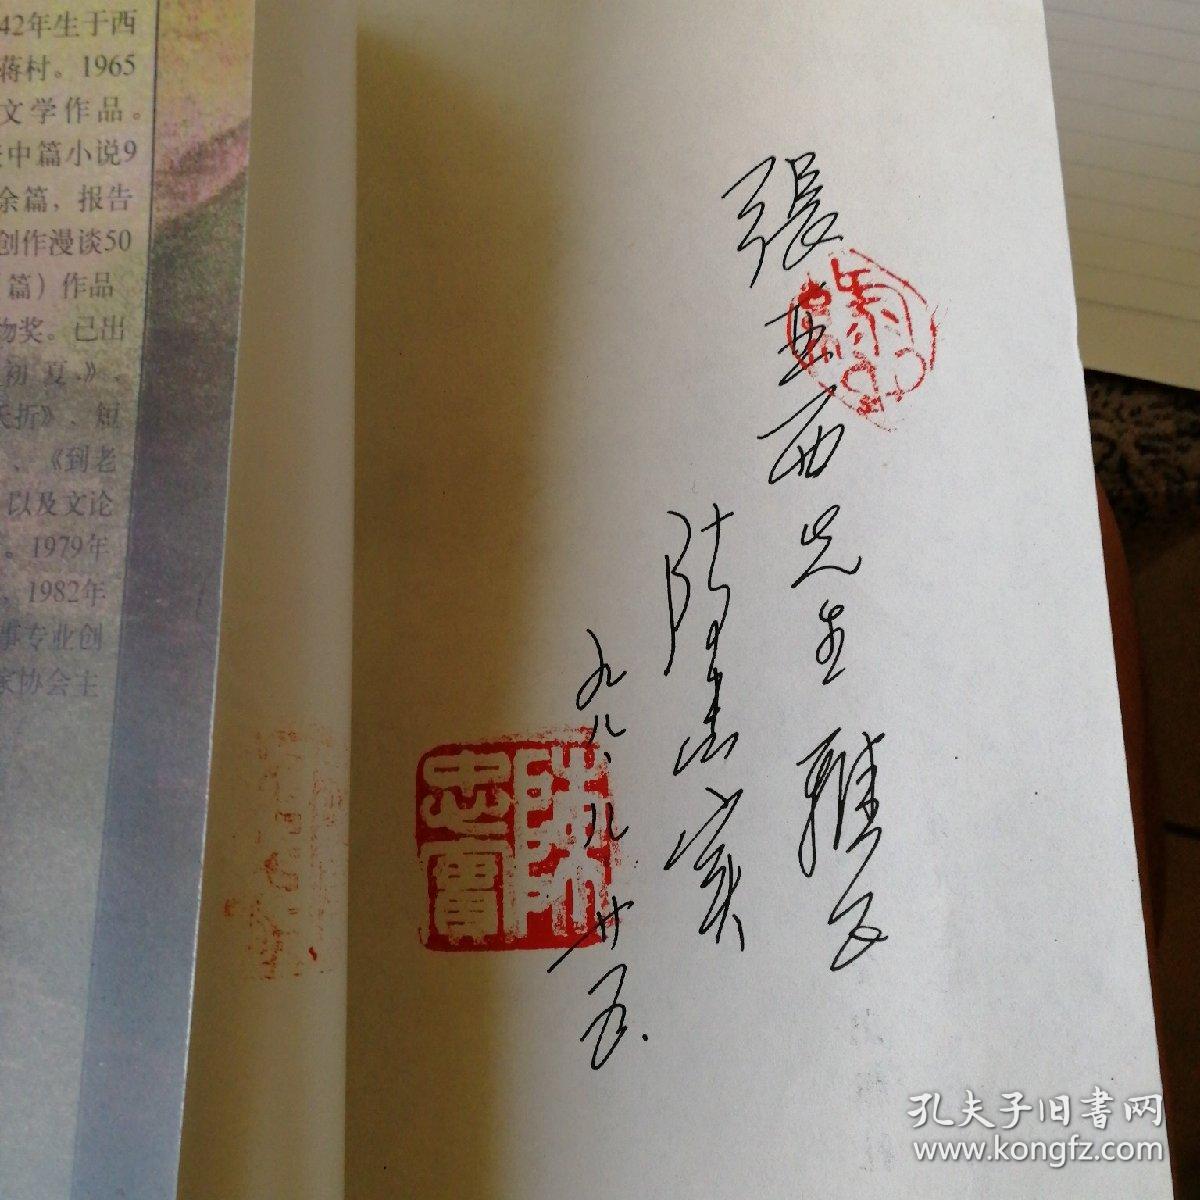 42年生于西
蒋村。1965
文学作品。
中篇小说9
余篇，报告
创作漫谈50
篇）作品
物奖。已出
初夏》、
夭折》、短
、《到老
以及文论
。1979年
，1982年
事专业创
家协会主
張
西先生雅正
陈忠实
九八、八、廿五.
陳
忠實
孔夫子旧書网
www.kongfz.com